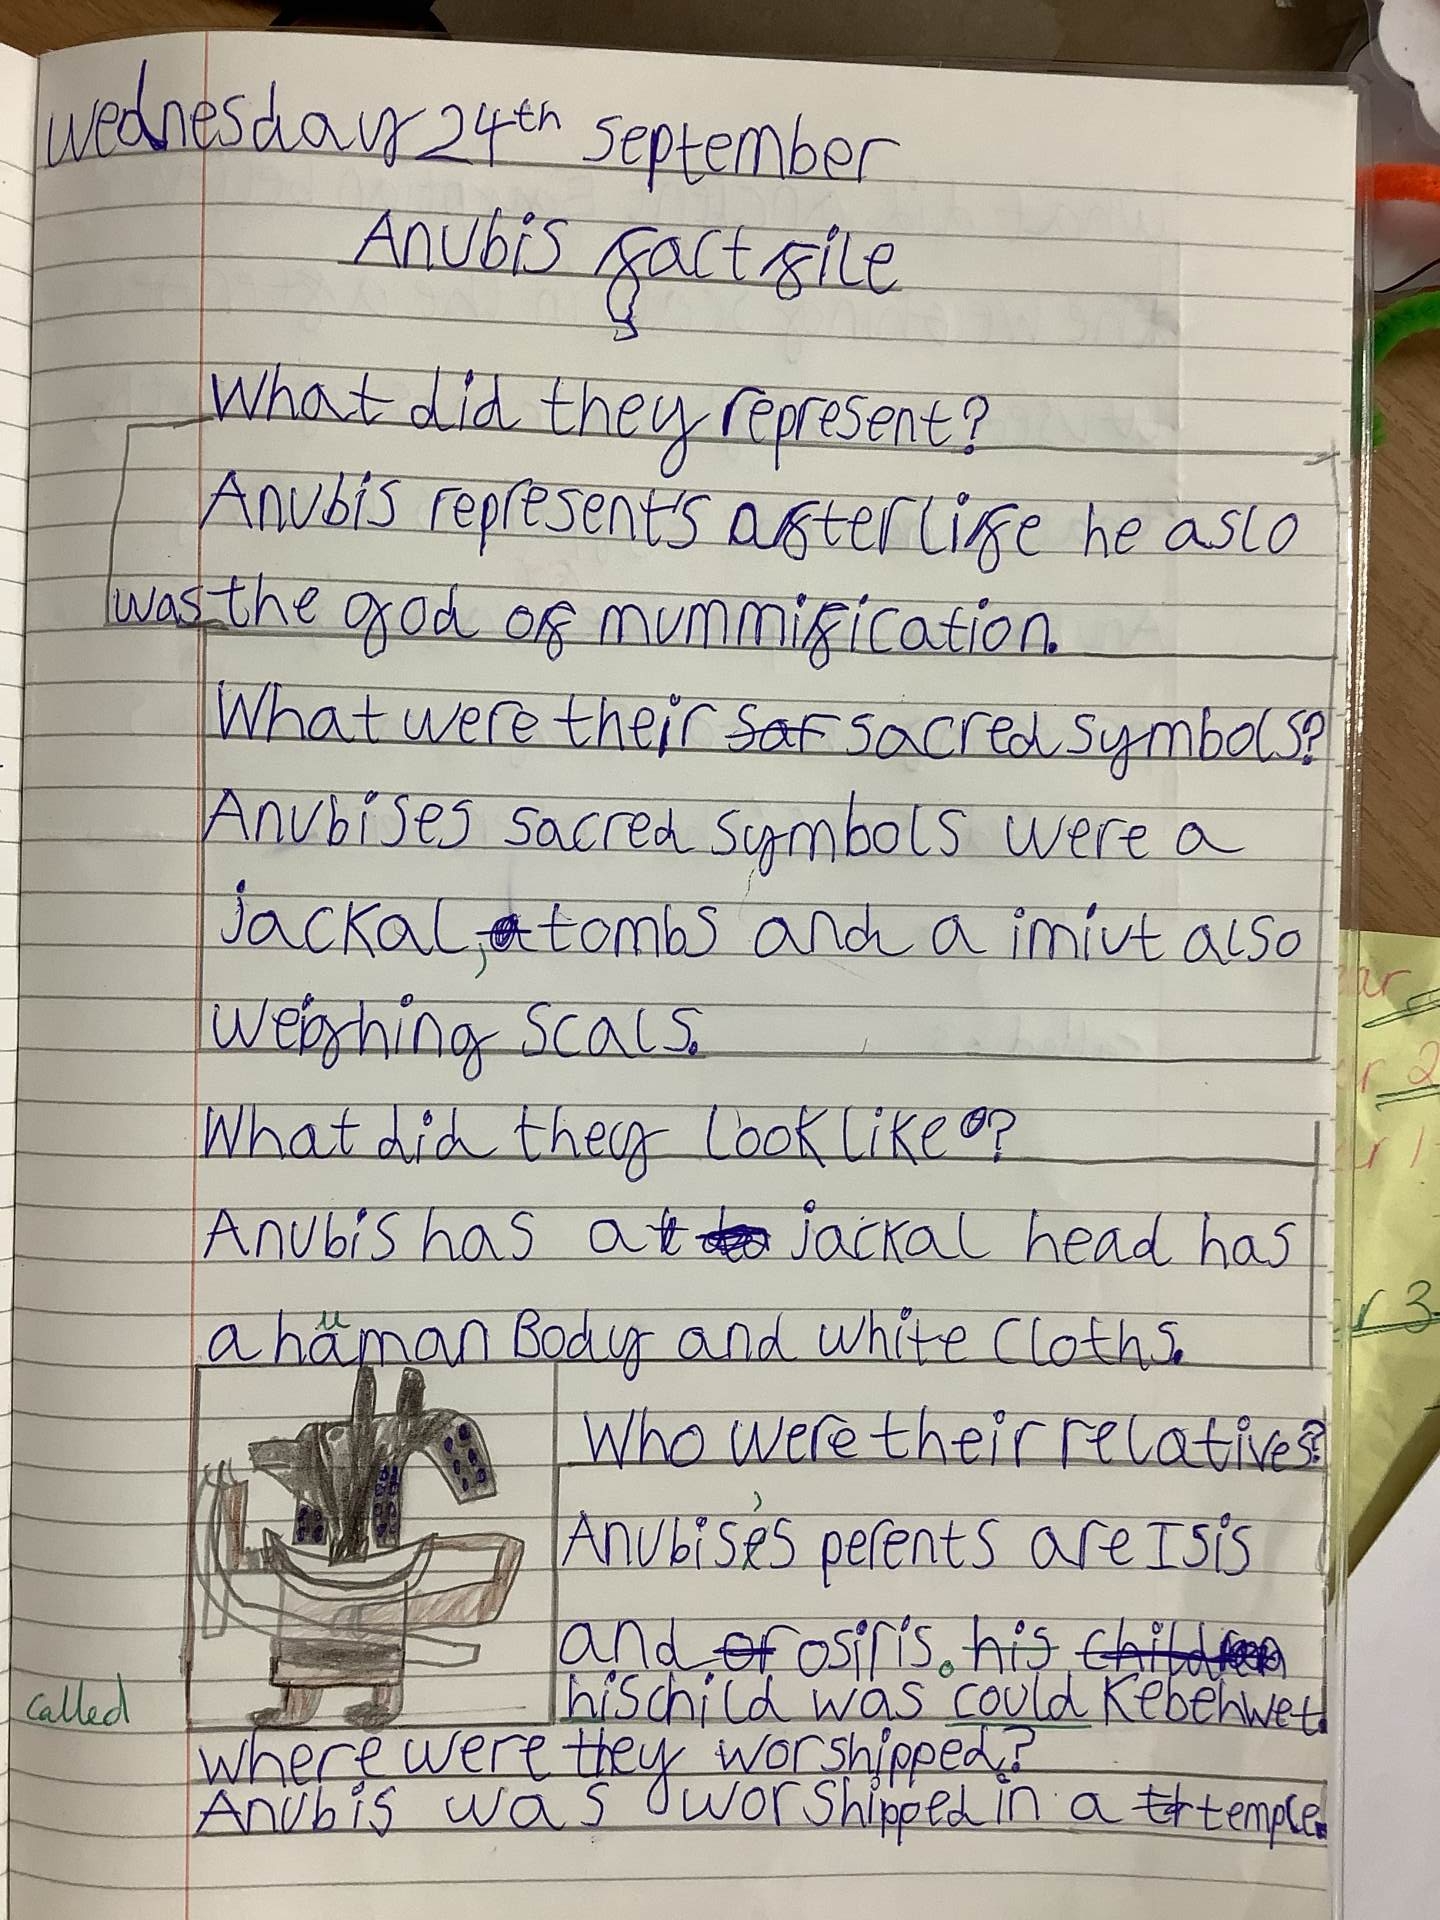 Wednesday 24th September
Anubis fact file
What did they represent?
Anubis represents afterlife he aslo
was the god of mummification.
What were their sar sacred symbols?
Anubises sacred symbols were a
jackal, a tombs and a imiut also
weighing scals.
What did they look like?
Anubis has at jackal head has
a haman Body and white cloths.
u
Who were their relatives?
Anubise's perents are Isis
and or osiris. his children
called
hischild was could Kebehwet.
where were they worshipped?
Anubis was worshipped in a tr temple.
ar
r 2
r 1
r 3